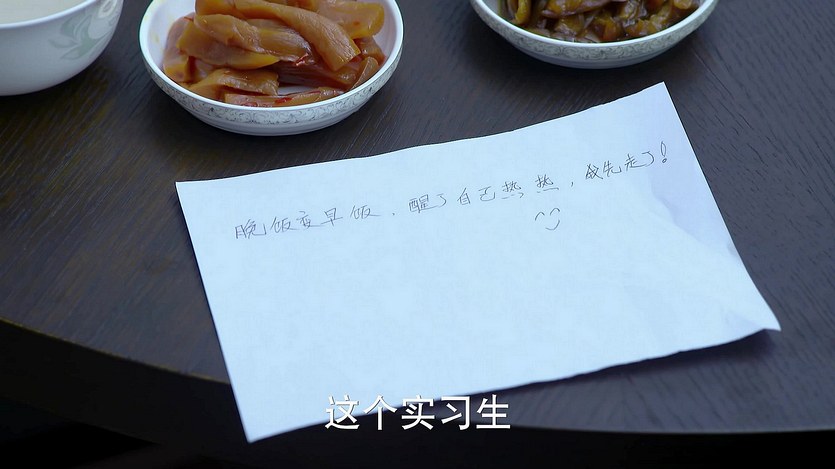 晚饭变早饭，醒了自己热热，我先走了！
这个实习生